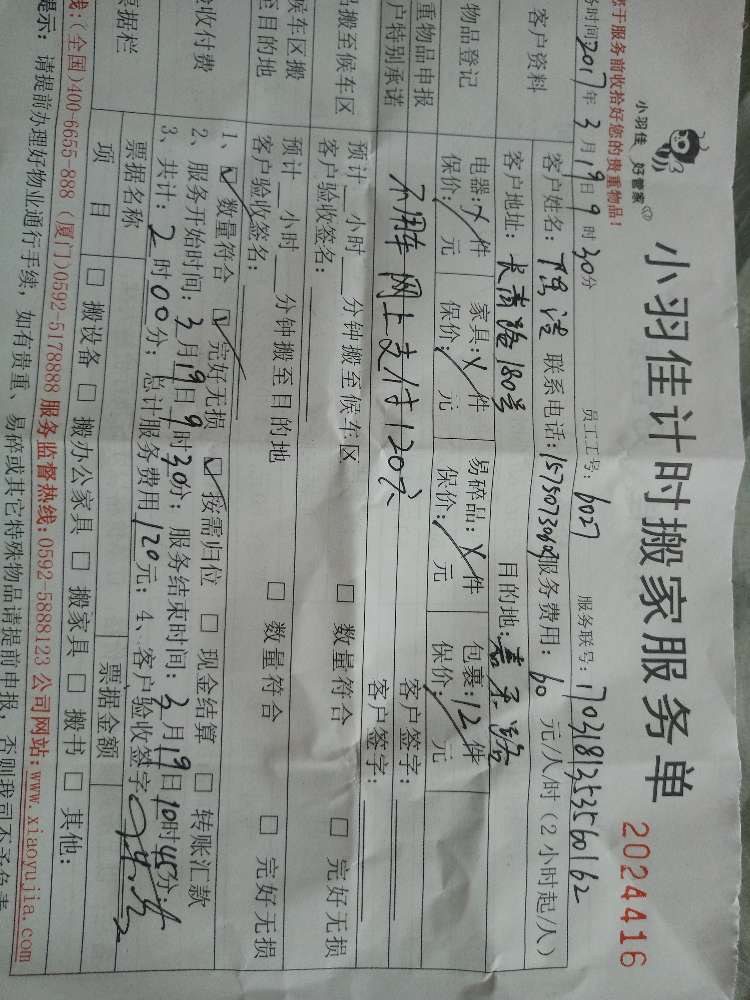 小羽佳 好管家
小羽佳计时搬家服务单
2024416
您于服务前收拾好您的贵重物品！
员工工号：6027 服务联号：1703181353560162
务时间2017年3月19日9时30分
客户资料
客户姓名： 联系电话：服务费用：60元/人/时（2小时起/人）
客户地址：长青路180号 目的地：嘉禾路
物品登记
电器：╱件 家具：╱件 易碎品：╱件 包裹：12件
保价：╱元 保价：╱元 保价：╱元 保价：╱元
重物品申报 不用车 网上支付120元 客户签字：
户特别承诺 客户签字：
品搬至候车区
预计__小时__分钟搬至候车区 □ 数量符合 □ 完好无损
客户验收签名：
候车区搬至目的地
预计__小时__分钟搬至目的地 □ 数量符合 □ 完好无损
客户验收签名：
验收付费
1、☑数量符合 ☑完好无损 ☑按需归位 □ 现金结算 □ 转账汇款
2、服务开始时间：3月19日9时30分；服务结束时间：3月19日10时45分；
3、共计：2时00分；总计服务费用120元；4、客户验收签字
票据栏
票据名称 票据金额
项目 □ 搬设备 □ 搬办公家具 □ 搬家具 □ 搬书 □ 其他：
线：(全国)400-6655-888 (厦门)0592-5178888 服务监督热线：0592-5888123 公司网站：www.xiaoyujia.com
提示：请提前办理好物业通行手续，如有贵重、易碎或其它特殊物品请提前申报，否则我司不予负责